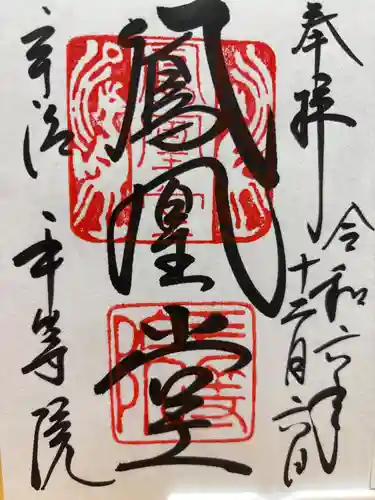 奉拝
令和六年
十二月六日
鳳凰堂
宇治 平等院